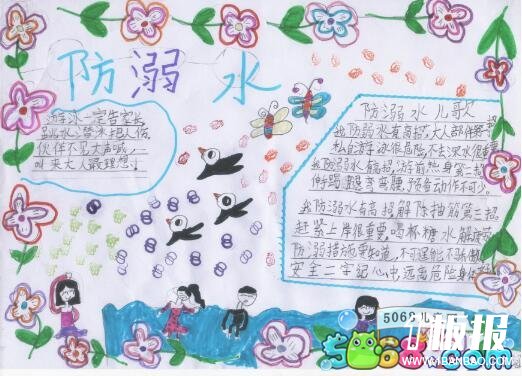 防溺水
游泳一定告家长
跳水潜泳把人伤
伙伴不见大声喊
叫来大人最理想!
防溺水儿歌
我防溺水有高招,大人部伴第一招
私自游泳很危险,不去深水很重要
我防溺水有高招,游前热身第二招
伸臂踢腿弯弯腰,预备动作不可少。
我防溺水有高招,解除抽筋第三招
赶紧上岸很重要,喝杯糖水解疲劳
防溺措施要知道,不可逞能不骄傲
安全二字记心中,远离危险身体
5068儿
板报
WWW.1BANBAO.COM